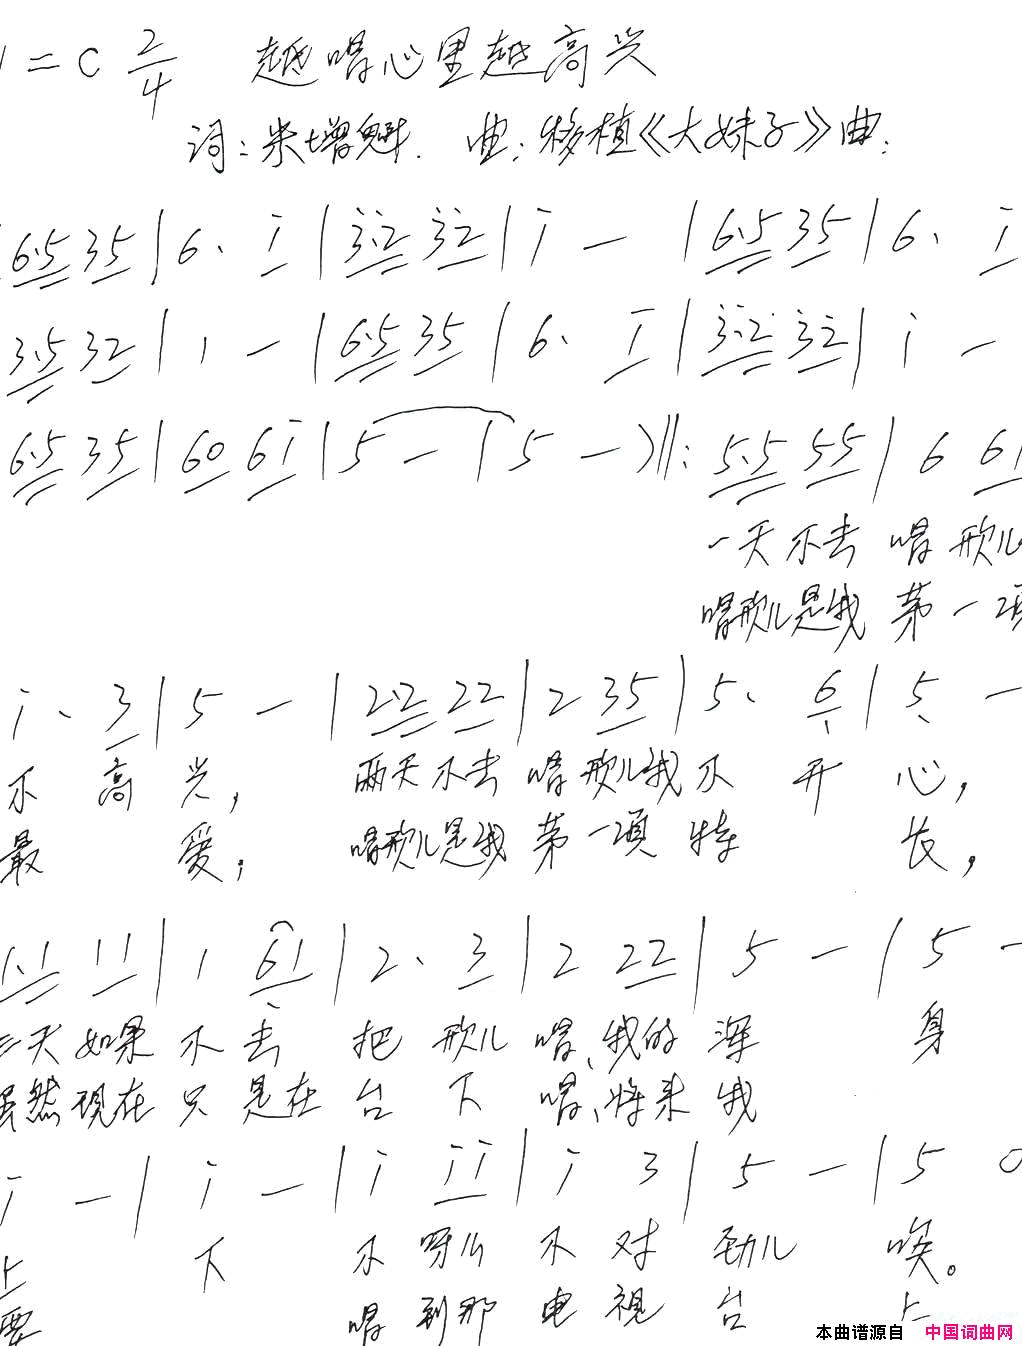 1=C 2/4 越唱心里越高兴
词:朱增魁. 曲:移植《大妹子》曲.
6.5 35 | 6. i | 3.2 32 | i — | 6.5 35 | 6. i
3.5 32 | 1 — | 6.5 35 | 6. i | 3.2 32 | i —
6.5 35 | 60 6i | 5 — | 5 — ‖: 5.5 55 | 6 6i
一天不去 唱 歌儿
唱歌儿是我 第一项
i. 3 | 5 — | 2.2 22 | 2 35 | 5. 6 | 5 —
不 高 兴, 两天不去 唱歌儿我不 开 心,
最 爱, 唱歌儿是我 第一项 特 长,
1.1 11 | 1 61 | 2. 3 | 2 22 | 5 — | 5 —
三天如果 不 去 把 歌儿 唱,我的 浑 身
虽然现在 只 是在 台 下 唱,将来 我
i — | i — | i ii | i 3 | 5 — | 5 0
上 下 不 呀么 不 对 劲儿 唉。
要 唱 到那 电 视 台 上
本曲谱源自 中国词曲网